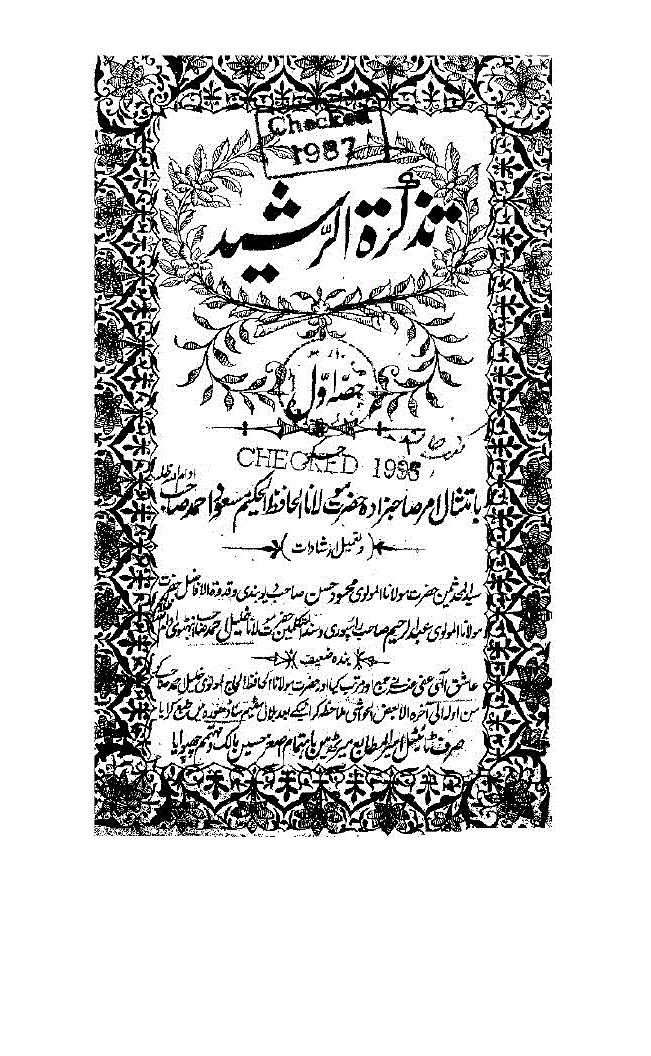 Checked
1987
تذکرة الرشید
حصہ اول
CHECKED 1996
بامتثال امر صاحبزادہ حضرت مولانا الحافظ الحکیم مسعود احمد صاحب
(وتعمیل ارشادات)
سید المحدثین حضرت مولانا المولوی محمود حسن صاحب دیوبندی و قدوة الافاضل حضرت
مولانا المولوی عبد الرحیم صاحب رائپوری و سند المتکلمین حضرت مولانا خلیل احمد صاحب
بندہ ضعیف
عاشق الٰہی عفی عنہ نے جمع اور مرتب کیا اور حضرت مولانا الحافظ الحاج المولوی خلیل احمد صاحب
من اولہ الی آخرہ ملاحظہ کرا کے بعد
میرٹھ میں باہتمام حسین مالک و مہتمم چھپوایا